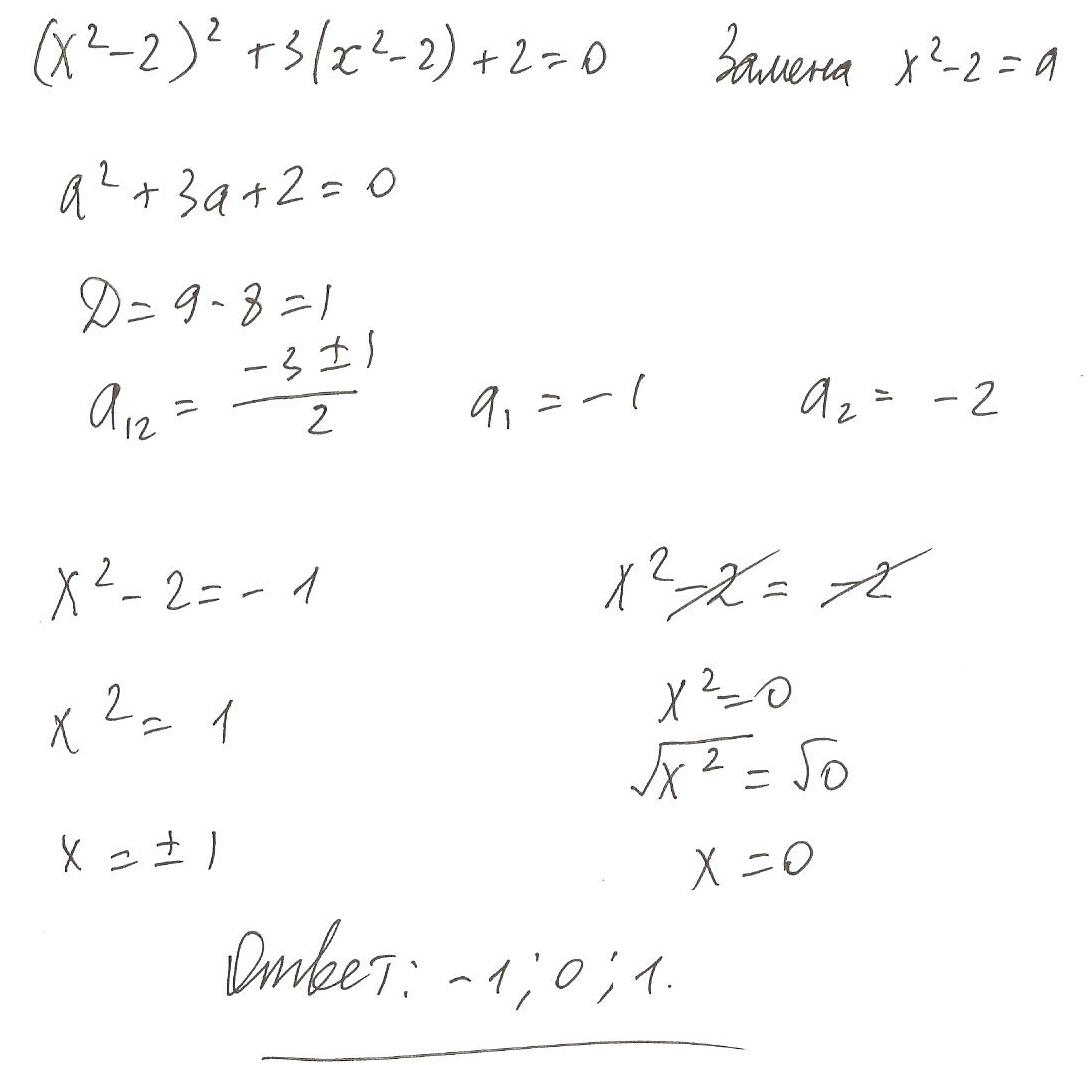 (x²-2)² +3(x²-2)+2=0 Замена x²-2=a
a²+3a+2=0
D=9-8=1
a₁₂ = (-3±1)/2 a₁=-1 a₂=-2
x²-2=-1 x²-2=-2
x²=1 x²=0
√x²=√0
x=±1 x=0
Ответ: -1; 0; 1.